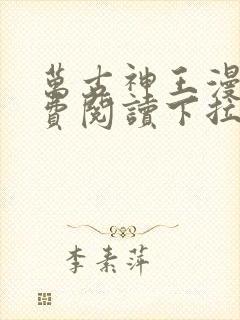 萬古神王漫
費閱讀下拉
李素萍